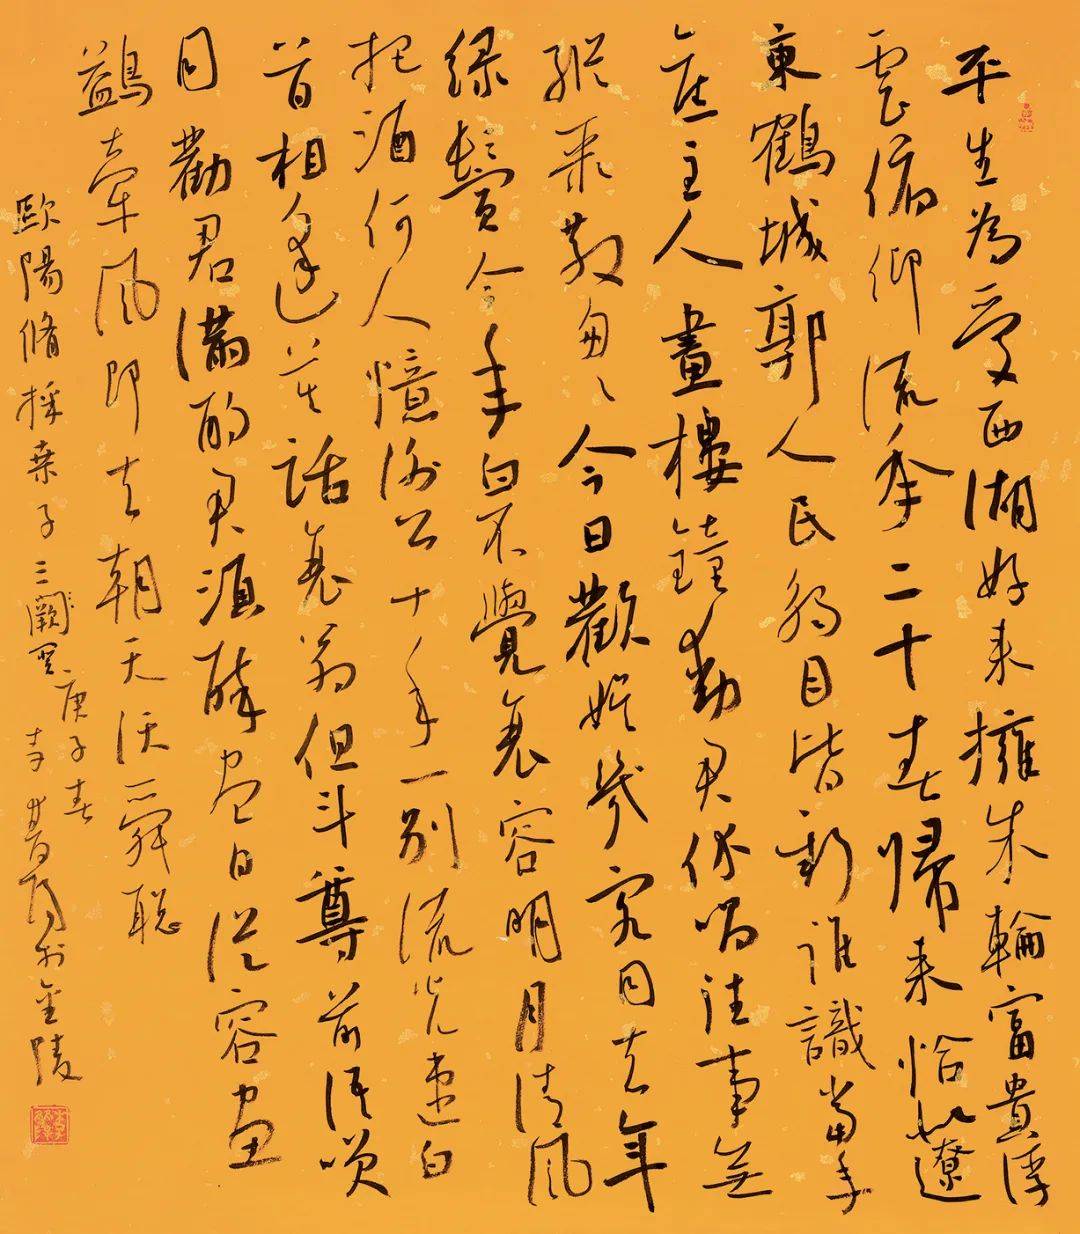 平生為愛西湖好来擁朱輪富貴浮
雲俯仰流年二十春歸来恰似遼
東鶴城郭人民觸目皆新誰識當年
舊主人畫樓鐘動君休唱往事無
蹤聚散匆々今日歡娛幾客同去年
緑鬢今年白不覺衰容明月清風
把酒何人憶謝公十年一别流光速白
首相逢莫話衰翁但斗尊前語笑
同勸君滿酌君須醉盡日從容畫
鷁牽風即去朝天沃舜聰
歐陽脩採桑子三闋
庚子春
於金陵